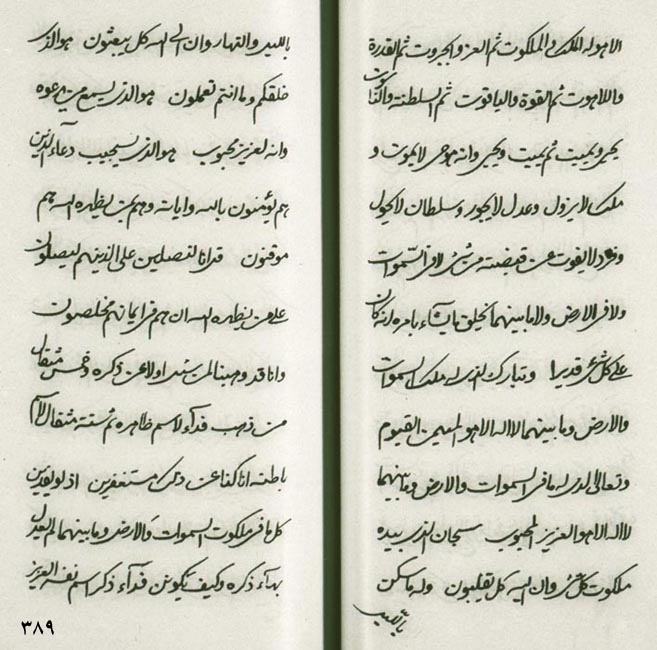 الاهو له الملك والملكوت ثم العز والجبروت ثم القدرة
واللاهوت ثم القوة والياقوت ثم السلطنة والناسوت
يحيى ويميت ثم يميت ويحيى وانه هو حى لايموت و
ملك لايزول وعدل لايجور وسلطان لايحول
وفرد لايفوت عن قبضته من شئ لا فى السموات
ولا فى الارض ولا ما بينهما يخلق مايشاء بامره انه كان
على كل شئ قديرا وتبارك الذى له ملك السموات
والارض وما بينهما لا اله الا هو المهيمن القيوم
وتعالى الذى له ما فى السموات والارض وما بينهما
لا اله الا هو العزيز المحبوب سبحان الذى بيده
ملكوت كل شئ وان اليه كل يقلبون وله ما سكن
بالليل
بالليل والنهار وان الى الله كل يبعثون هو الذى
خلقكم وما انتم تعملون هو الذى يسمع من يدعوه
وانه لعزيز محبوب هو الذى يستجيب دعاء الذين
هم يؤمنون بالله واياته وهم بمن يظهره الله هم
موقنون قد انا لنصلين على الذينهم ليصلون
على من يظهره الله ان هم فى ايمانهم مخلصون
وانا قد وهبنا من اولا عن ذكره خمس مثقال
من ذهب فداء لاسم ظاهره ثم ستة مثقال
باطنه انا كنا عن ذلك مستغفرين اذ لو يفدين
كل ما فى ملكوت السموات والارض وما بينهما لم يعدل
بهاء ذكره وكيف يكونن فداء ذكر اسم نفسه العزيز
٣٨٩